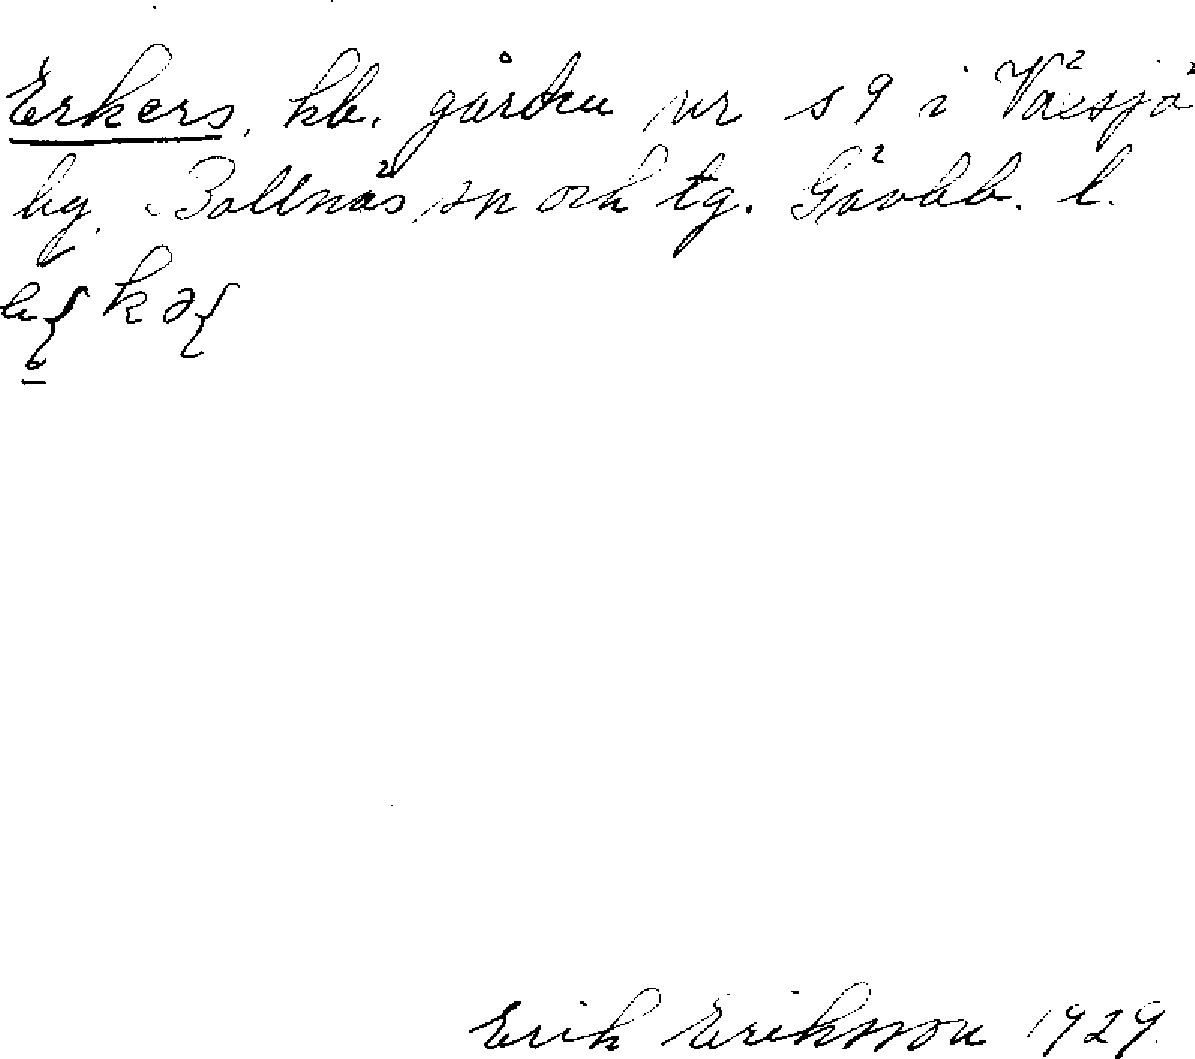 Erkers, hb. gården nr s 9 i Växsjö
by. Bollnäs sn och tg. Gävlb. l.
Erik Eriksson 1929.